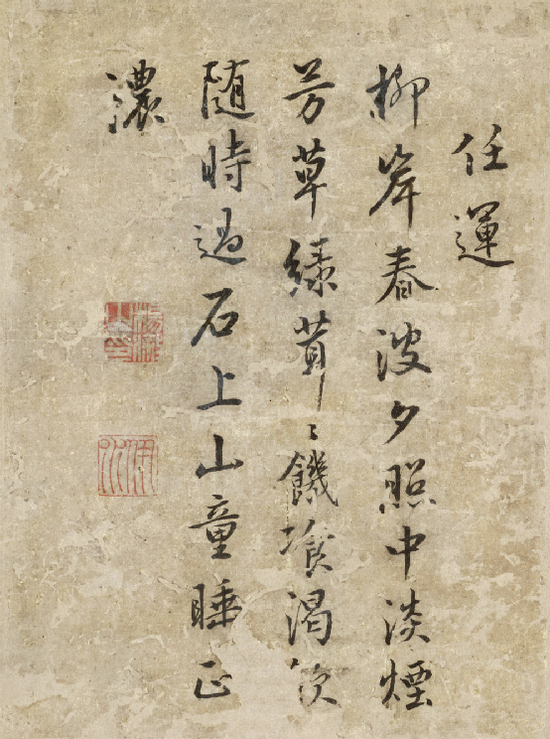 任運
柳岸春波夕照中淡煙
芳草綠茸〻饑飡渴飲
隨時過石上山童睡正
濃